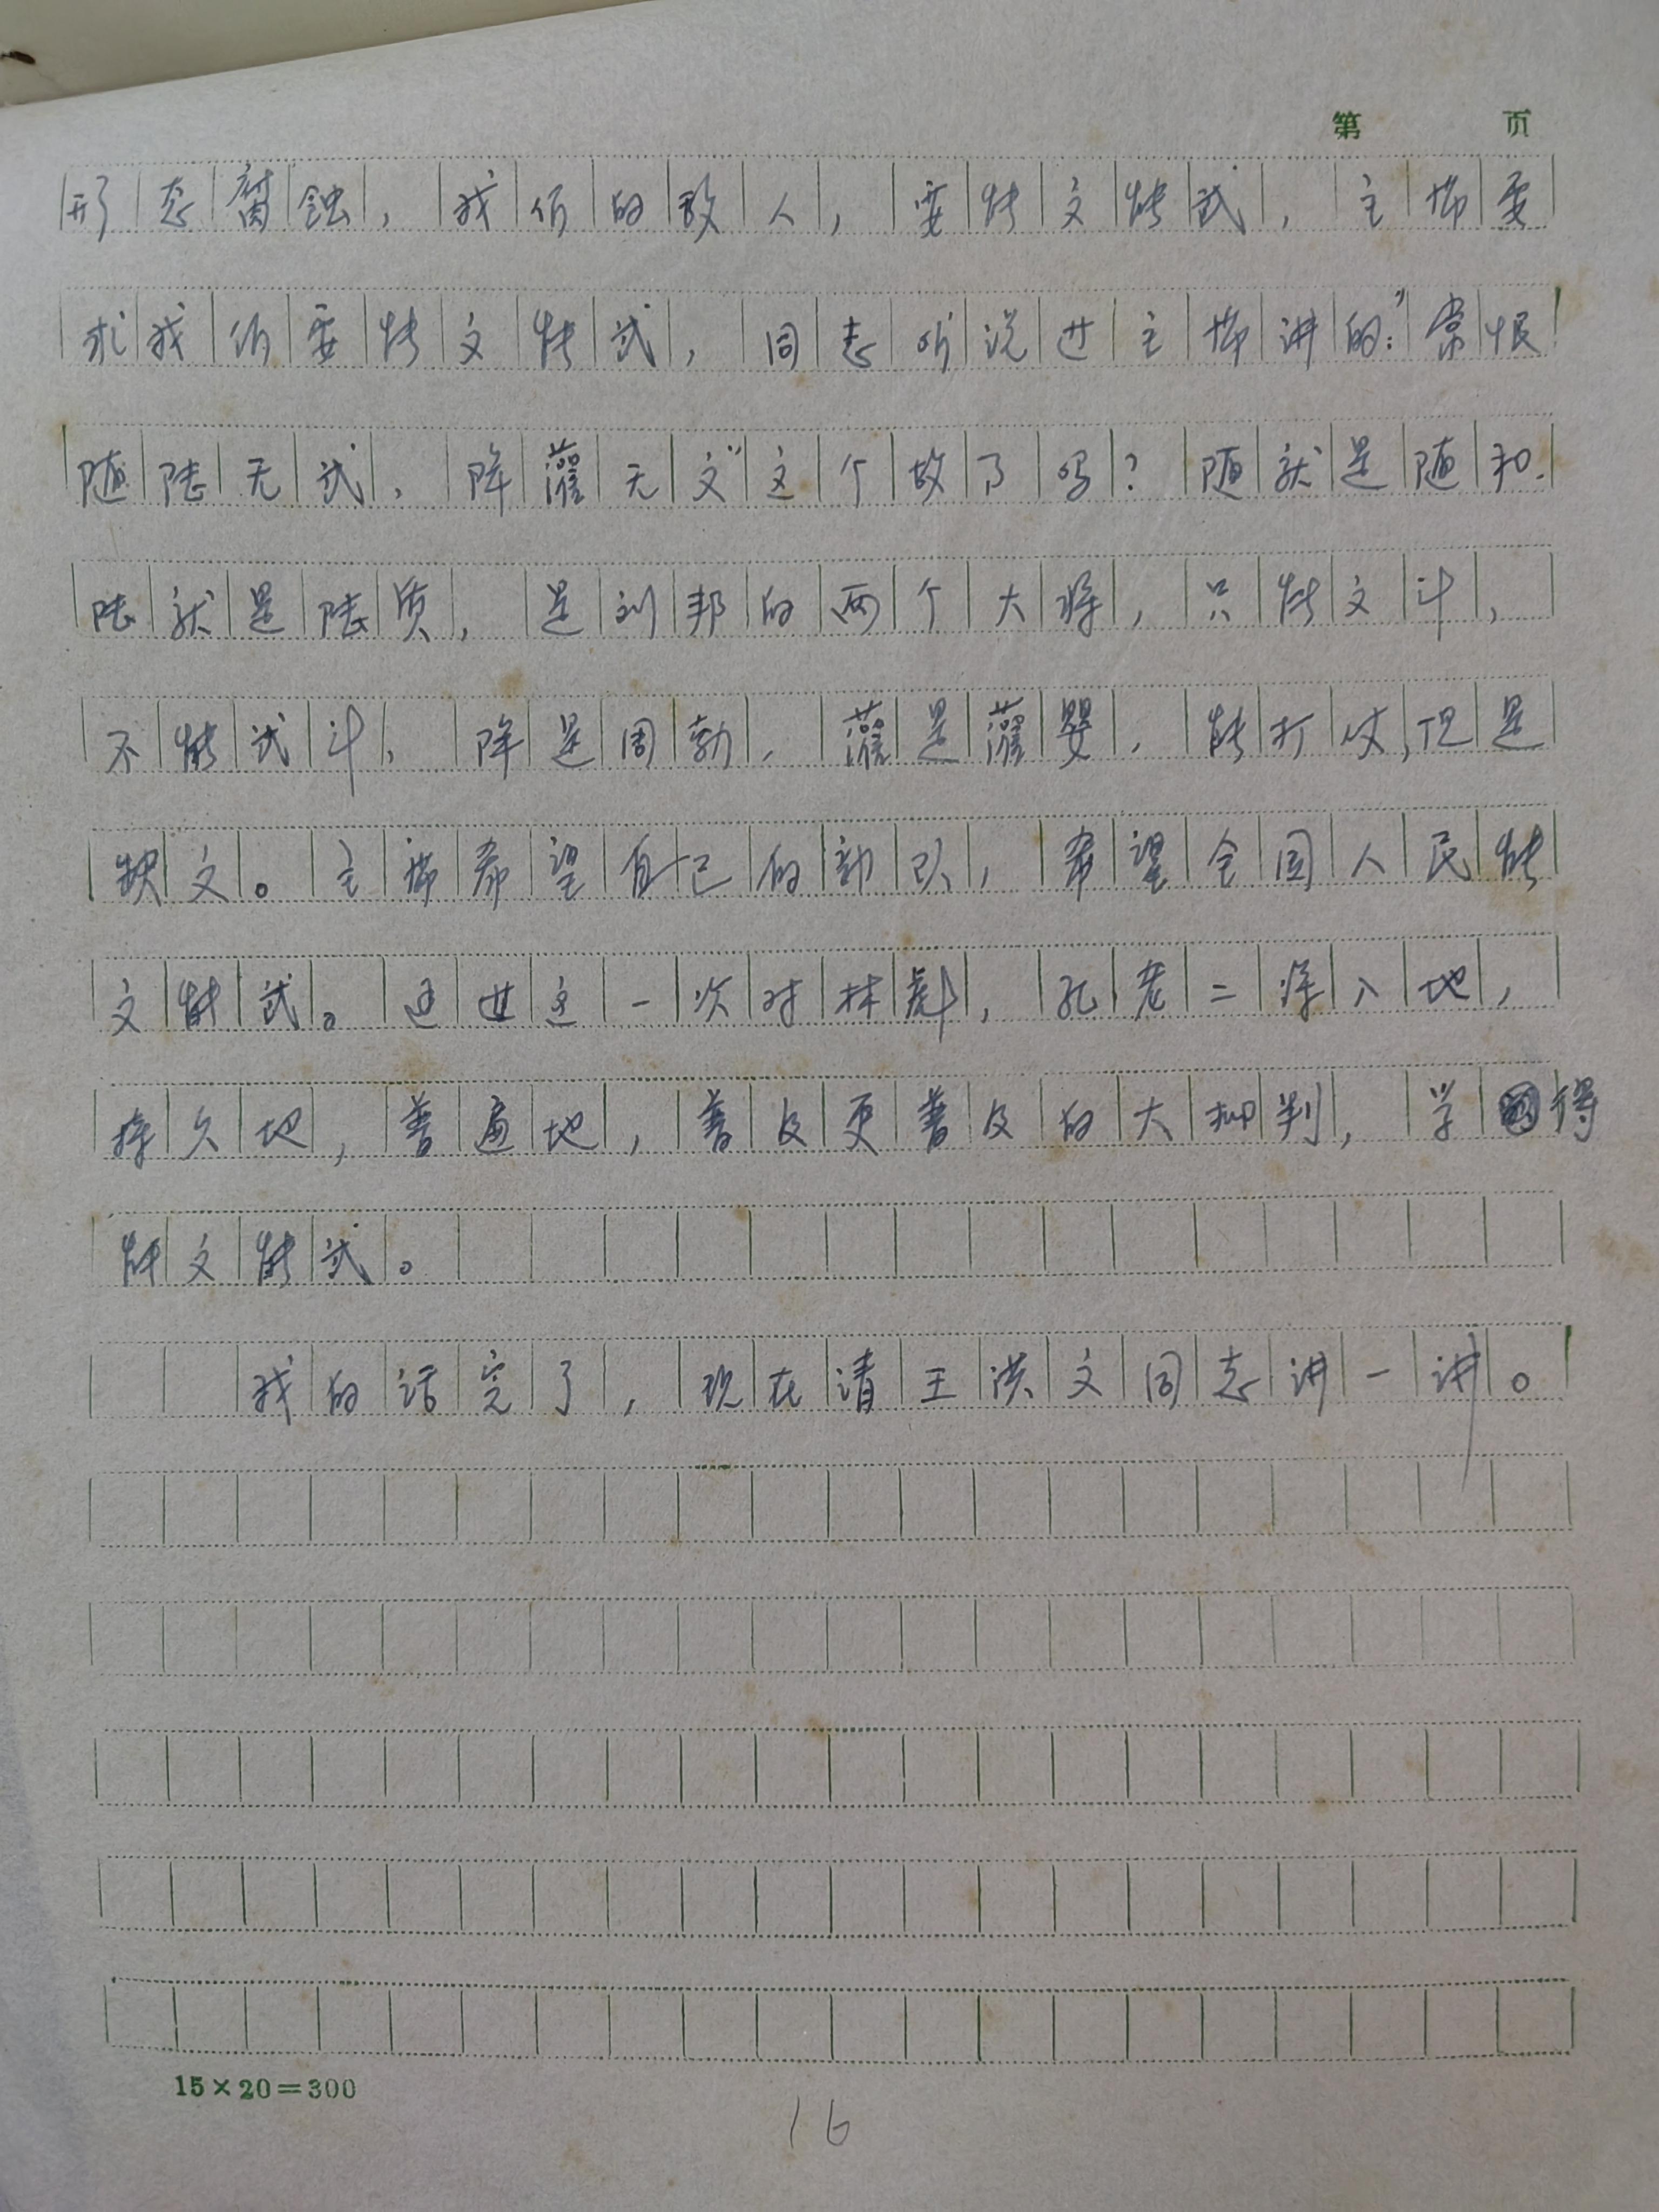 第 页
形态腐蚀，我们的敌人，要能文能武，主席要
求我们要能文能武，同志听说过主席讲的：“常恨
随陆无武，降灌无文”这个故了吗？随就是随和.
陆就是陆贾，是刘邦的两个大将，只能文斗，
不能武斗，降是周勃，灌是灌婴，能打仗，但是
缺文。主席希望自己的部队，希望全国人民能
文能武。通过这一次对林彪，孔老二深入地，
持久地，普遍地，普及更普及的大批判，学得
能文能武。
我的话完了，现在请王洪文同志讲一讲。
15×20=300
16